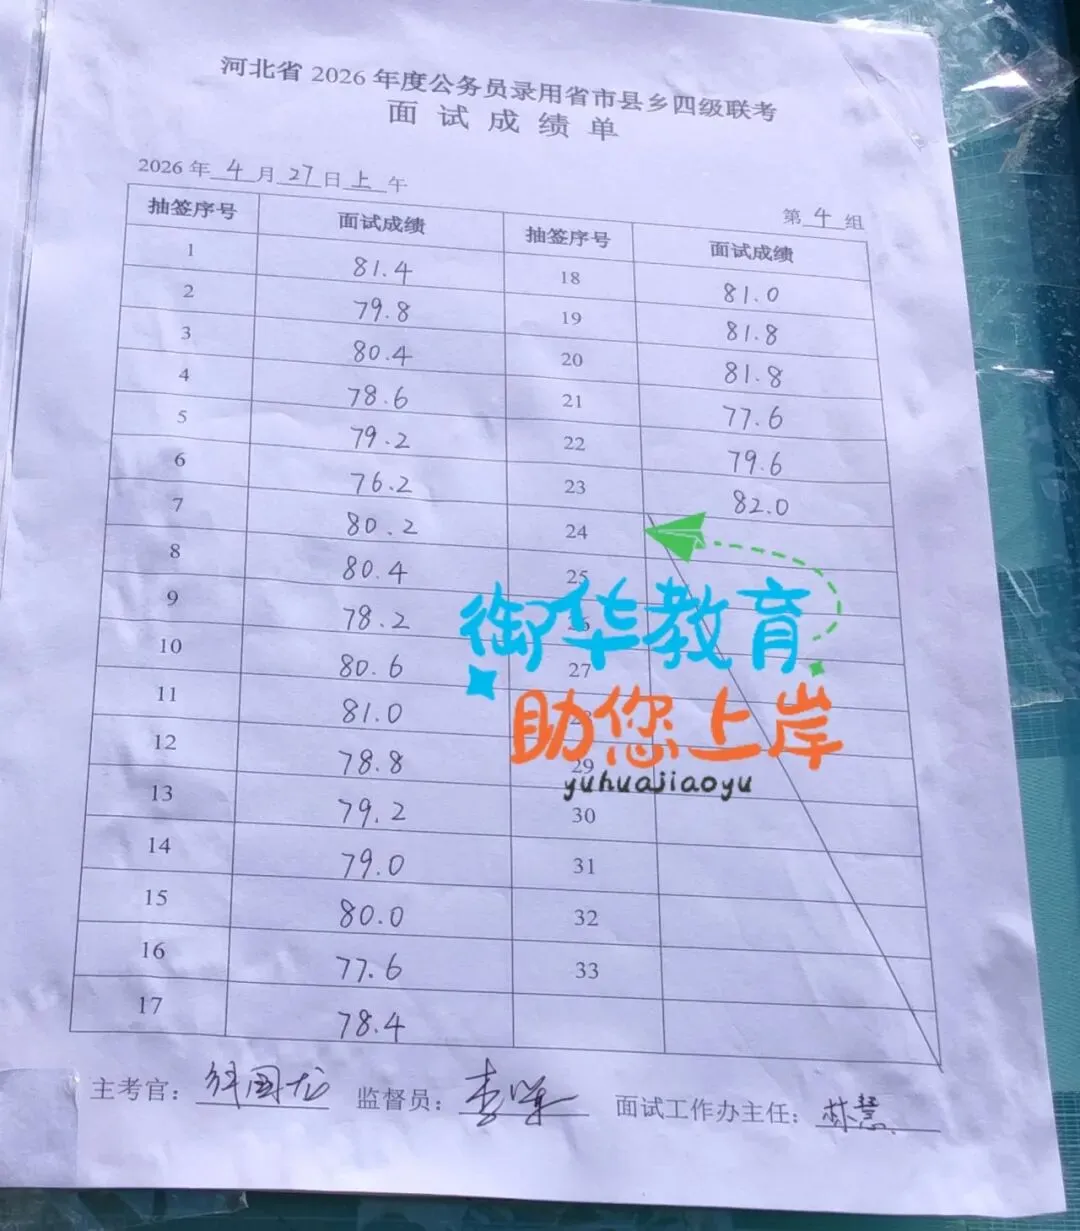 河北省 2026 年度公务员录用省市县乡四级联考
面试成绩单
2026 年 4 月 27 日 上 午
第 4 组
抽签序号 面试成绩 抽签序号 面试成绩
1 81.4 18 81.0
2 79.8 19 81.8
3 80.4 20 81.8
4 78.6 21 77.6
5 79.2 22 79.6
6 76.2 23 82.0
7 80.2 24
8 80.4 25
9 78.2 26
10 80.6 27
11 81.0 28
12 78.8 29
13 79.2 30
14 79.0 31
15 80.0 32
16 77.6 33
17 78.4
御华教育
助您上岸
yuhuajiaoyu
主考官: 监督员: 面试工作办主任: 林慧